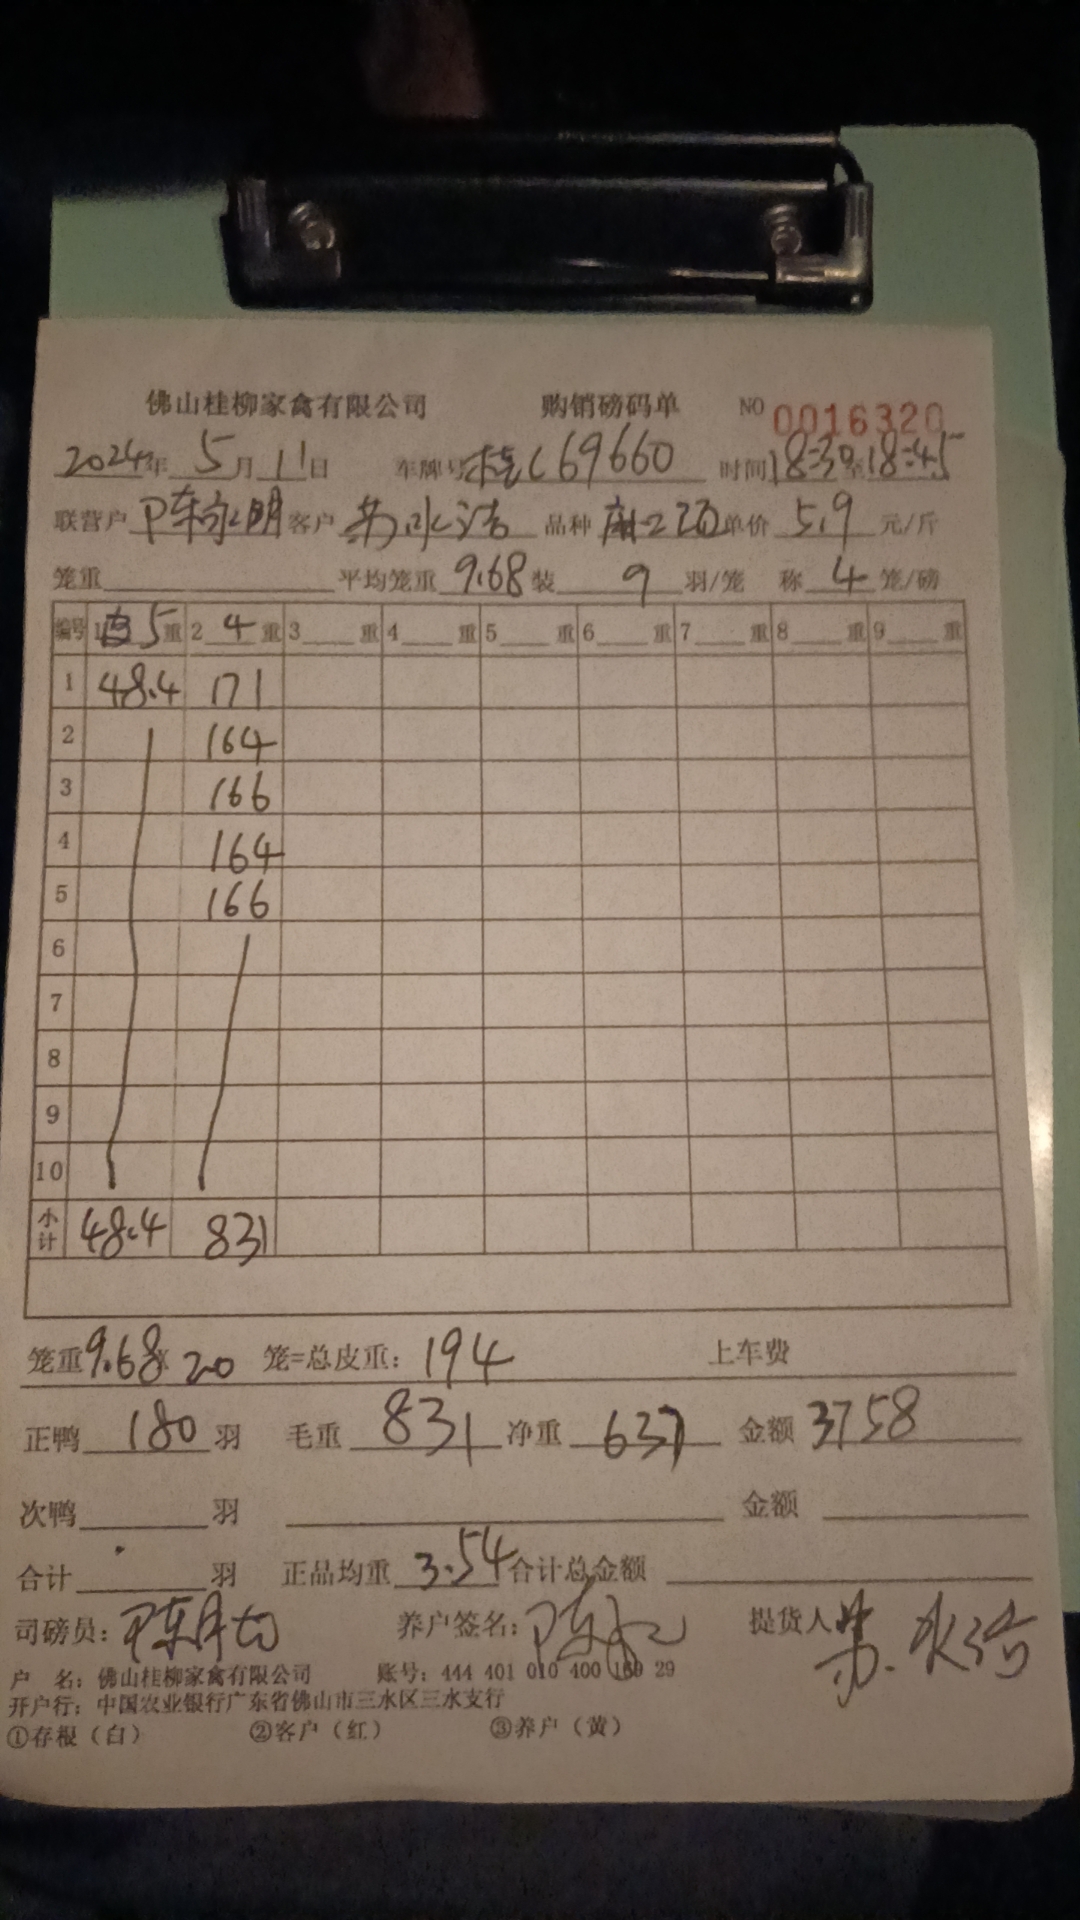 佛山桂柳家禽有限公司 购销磅码单 NO 0016320
2024年 5月 11日 车牌号桂C69660 时间18:30至18:45
联营户 陈永明 客户 苏水洁 品种 麻2项 单价 5.9 元/斤
笼重 平均笼重 9.68 装 9 羽/笼 称 4 笼/磅
编号 1 5重 2 4 重 3 重 4 重 5 重 6 重 7 重 8 重 9 重
1 48.4 171
2 164
3 166
4 164
5 166
6
7
8
9
10
小计 48.4 831
笼重9.68X 20 笼=总皮重: 194 上车费
正鸭 180 羽 毛重 831 净重 637 金额 3758
次鸭 羽 金额
合计 羽 正品均重 3.54 合计总金额
司磅员: 养户签名: 提货人
户 名: 佛山桂柳家禽有限公司 账号: 444 401 010 400 169 29
开户行: 中国农业银行广东省佛山市三水区三水支行
①存根（白） ②客户（红） ③养户（黄）